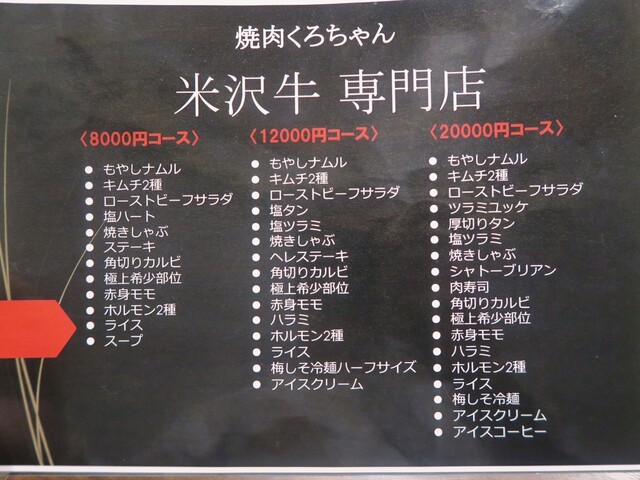 焼肉くろちゃん
米沢牛 専門店
〈8000円コース〉
● もやしナムル
● キムチ2種
● ローストビーフサラダ
● 塩ハート
● 焼きしゃぶ
● ステーキ
● 角切りカルビ
● 極上希少部位
● 赤身モモ
● ホルモン2種
● ライス
● スープ
〈12000円コース〉
● もやしナムル
● キムチ2種
● ローストビーフサラダ
● 塩タン
● 塩ツラミ
● 焼きしゃぶ
● ヘレステーキ
● 角切りカルビ
● 極上希少部位
● 赤身モモ
● ハラミ
● ホルモン2種
● ライス
● 梅しそ冷麺ハーフサイズ
● アイスクリーム
〈20000円コース〉
● もやしナムル
● キムチ2種
● ローストビーフサラダ
● ツラミユッケ
● 厚切りタン
● 塩ツラミ
● 焼きしゃぶ
● シャトーブリアン
● 肉寿司
● 角切りカルビ
● 極上希少部位
● 赤身モモ
● ハラミ
● ホルモン2種
● ライス
● 梅しそ冷麺
● アイスクリーム
● アイスコーヒー